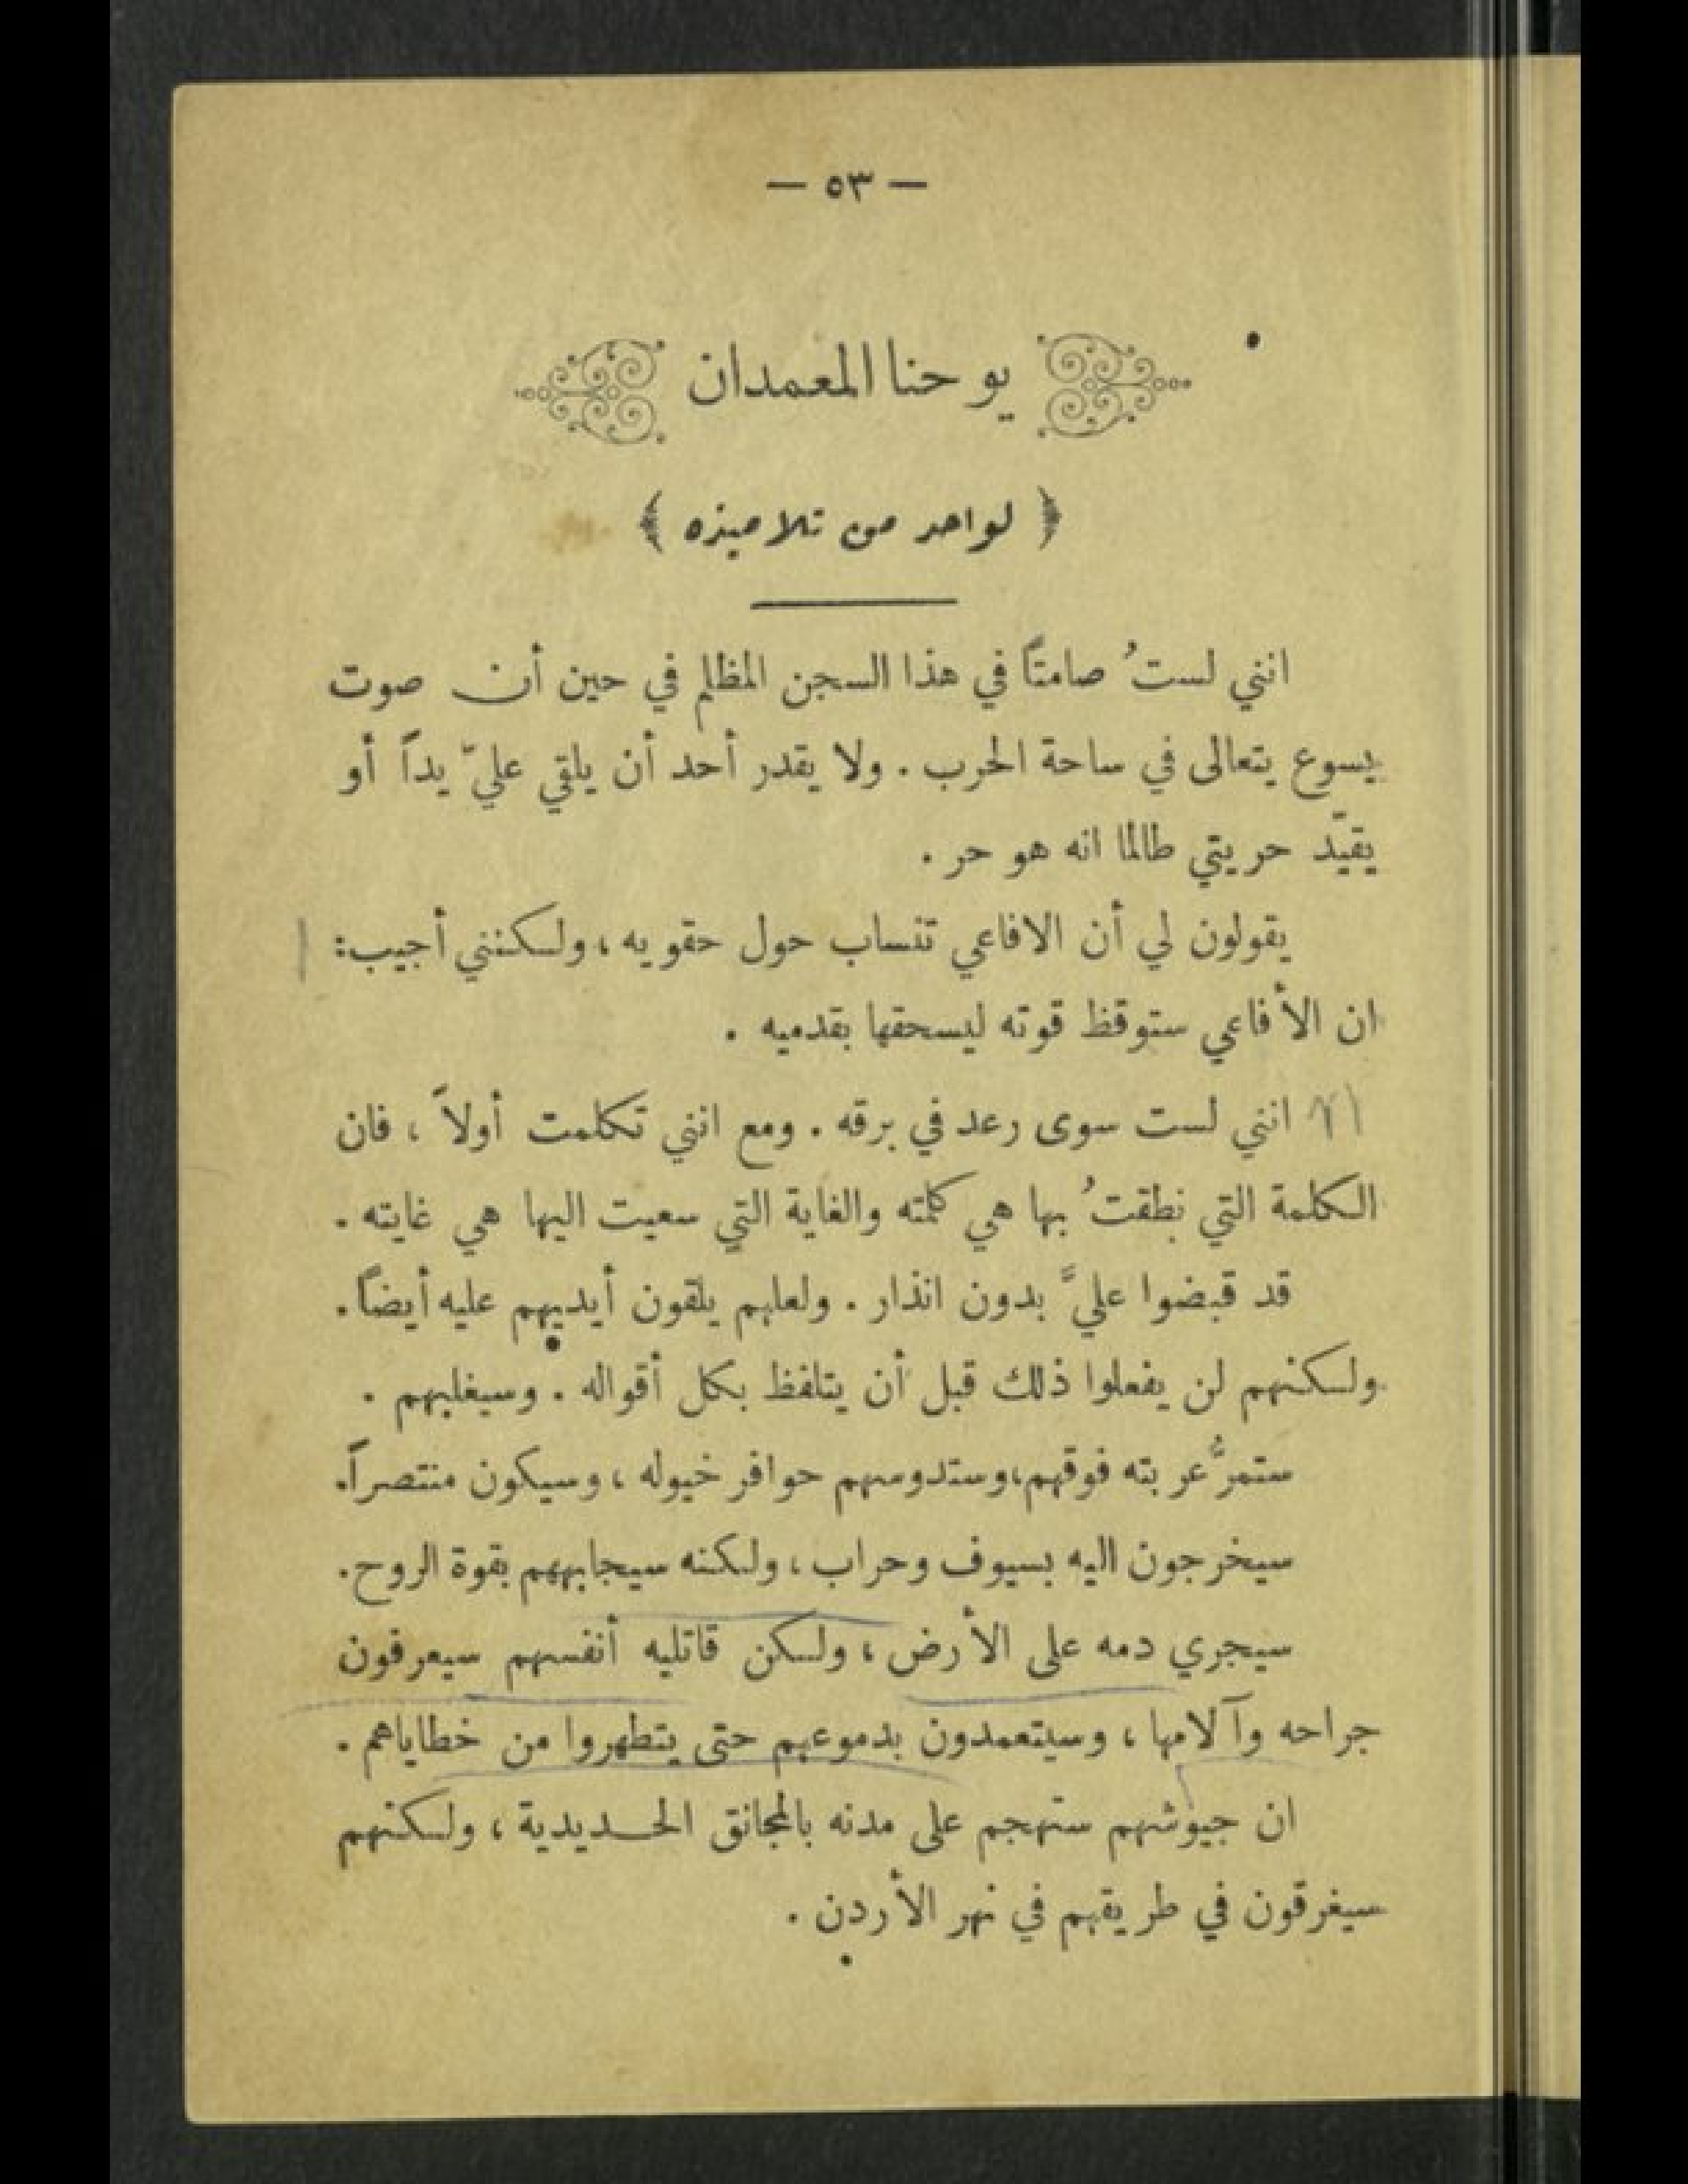 — ٥٣ —
يوحنا المعمدان
﴿ لواحد من تلاميذه ﴾
انني لستُ صامتاً في هذا السجن المظلم في حين أن صوت
يسوع يتعالى في ساحة الحرب . ولا يقدر أحد أن يلقي عليّ يداً أو
يقيّد حريتي طالما انه هو حر .
يقولون لي أن الافاعي تنساب حول حقويه ، ولكنني أجيب :
ان الأفاعي ستوقظ قوته ليسحقها بقدميه .
انني لست سوى رعد في برقه . ومع انني تكلمت أولاً ، فان
الكلمة التي نطقتُ بها هي كلمته والغاية التي سعيت اليها هي غايته .
قد قبضوا عليَّ بدون انذار . ولعلهم يلقون أيديهم عليه أيضاً .
ولكنهم لن يفعلوا ذلك قبل أن يتلفظ بكل أقواله . وسيغلبهم .
ستمرُّ عربته فوقهم ، وستدوسهم حوافر خيوله ، وسيكون منتصراً .
سيخرجون اليه بسيوف وحراب ، ولكنه سيجابههم بقوة الروح .
سيجري دمه على الأرض ، ولكن قاتليه أنفسهم سيعرفون
جراحه وآلامها ، وسيتعمدون بدموعهم حتى يتطهروا من خطاياهم .
ان جيوشهم ستهجم على مدنه بالمجانق الحديدية ، ولكنهم
سيغرقون في طريقهم في نهر الأردن .